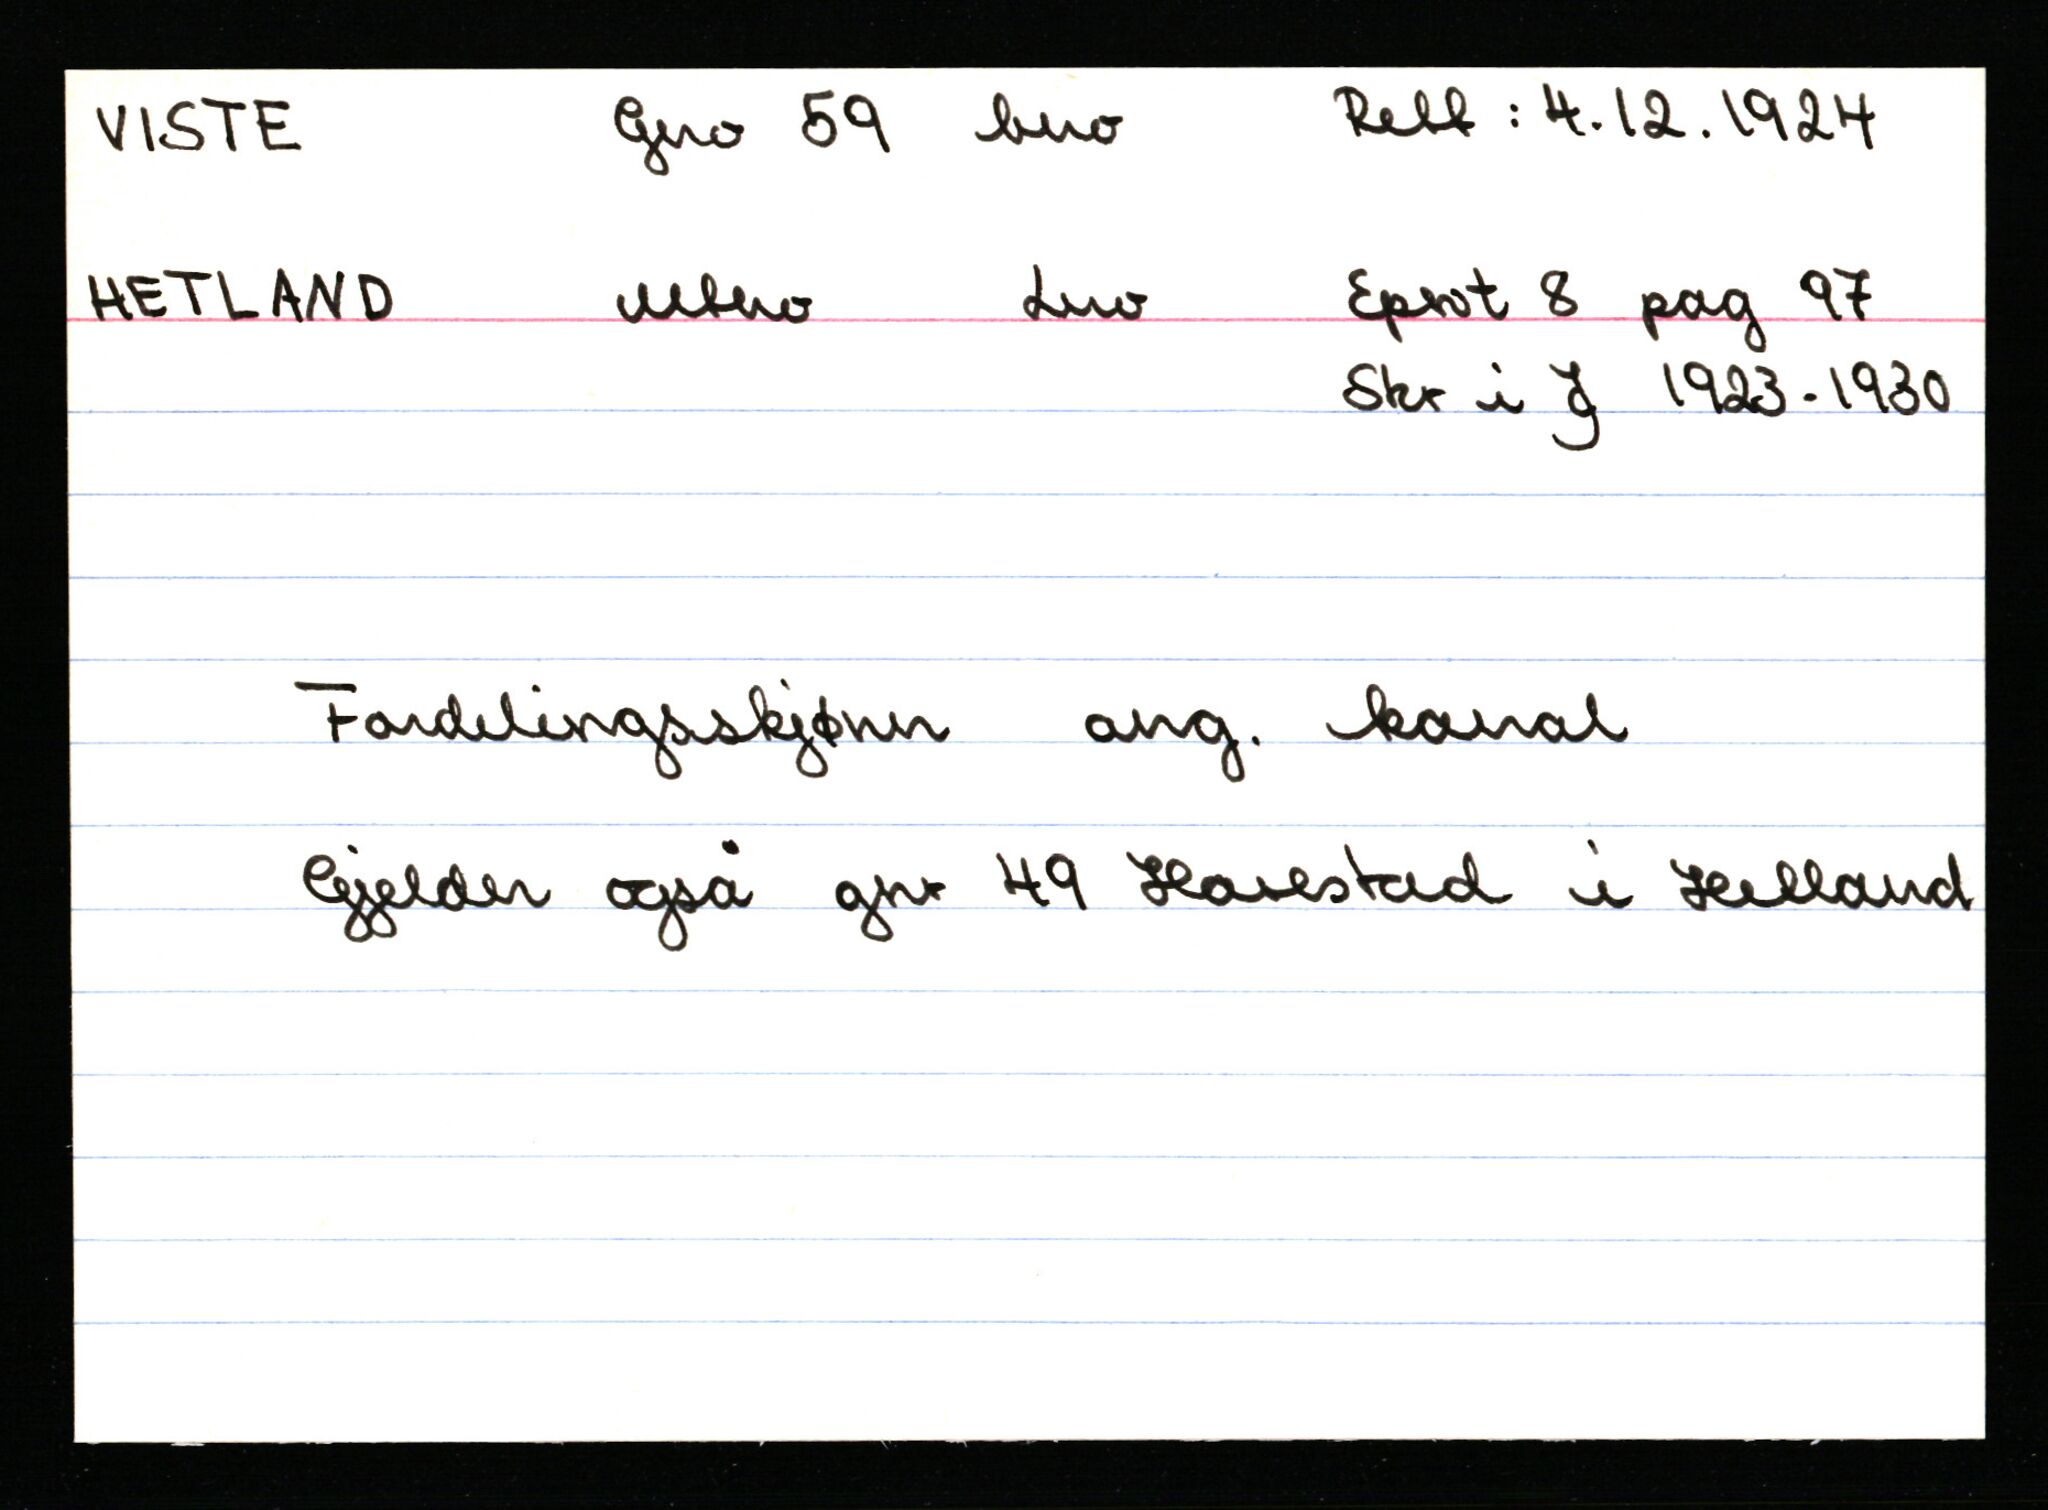 VISTE Gno 59 bno Rett : 4.12.1924
HETLAND Utmno Lno Eprot 8 pag 97
Skr i J 1923-1930
Fordelingsskjønn ang. kanal
Gjelder også gnr 49 Harestad i Hetland